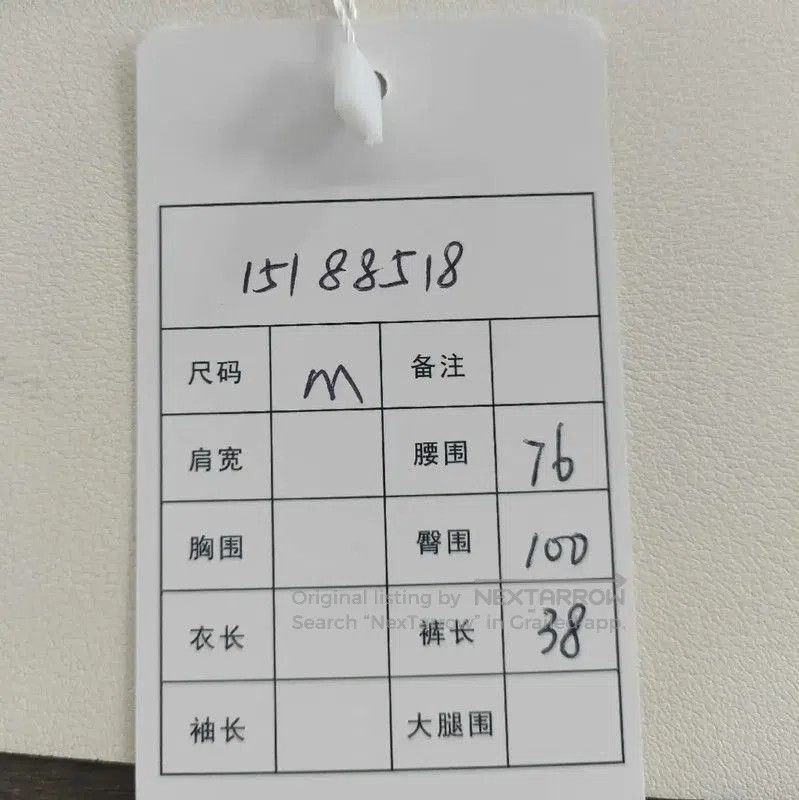 15188518
尺码 m 备注
肩宽 腰围 76
胸围 臀围 100
Original listing by NEXTARROW
Search "NexTarrow" in Grailed app.
衣长 裤长 38
袖长 大腿围